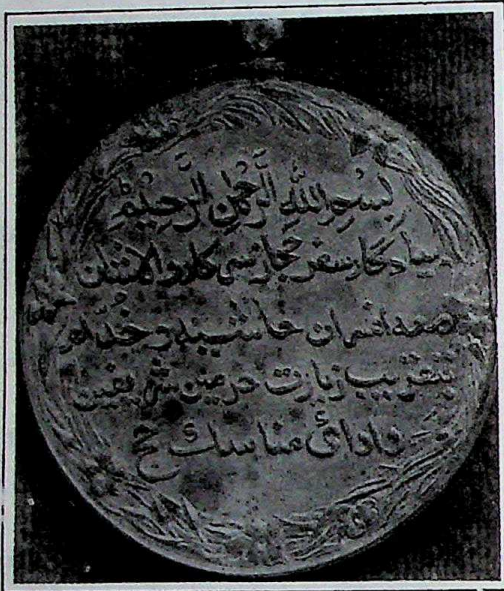 بِسْمِ اللّٰهِ الرَّحْمٰنِ الرَّحِيْمِ
يادگار سفر حجاز سركار والا شان
معه افسران حاشيه و خدام
بتقريب زيارت حرمين شريفين
و ادائ مناسك حج